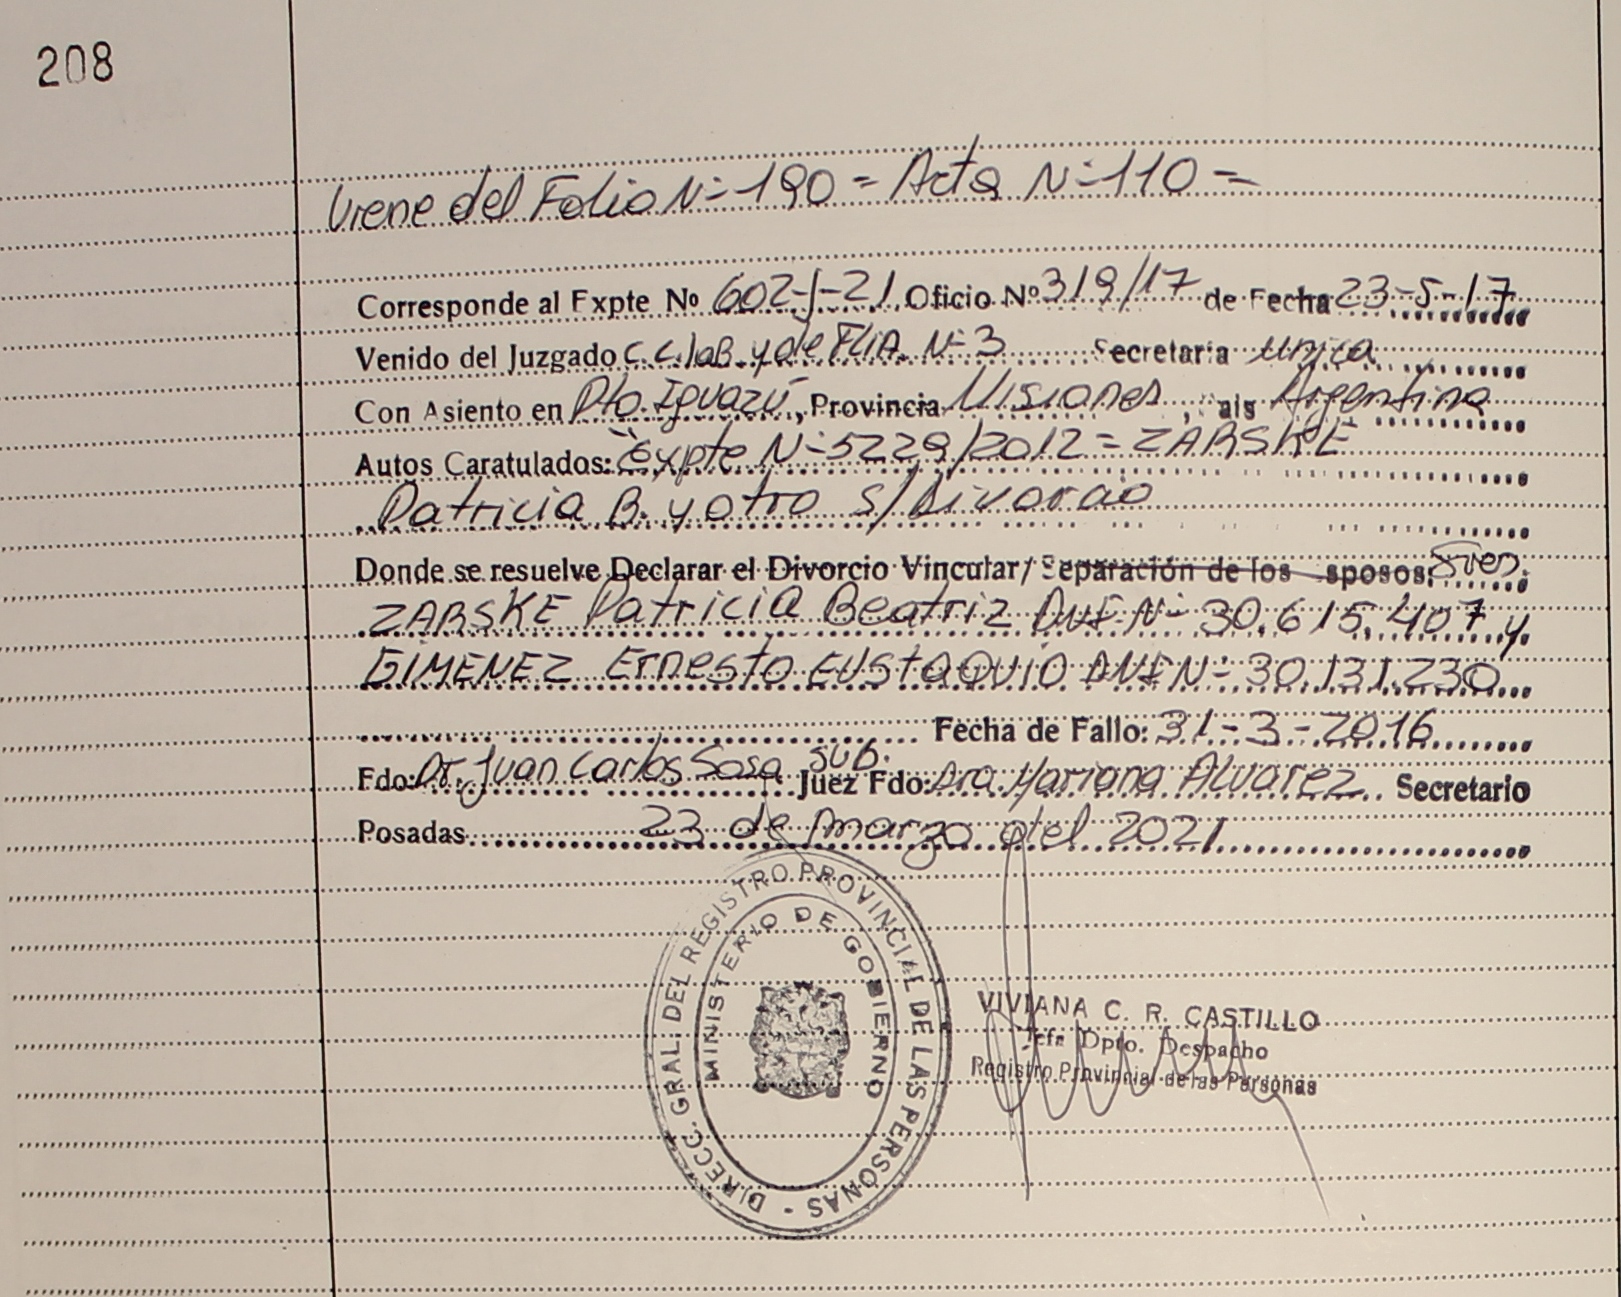 208
Viene del Folio Nº 190 = Acta Nº 110 =
Corresponde al Expte Nº 602-J-21 Oficio Nº 319/17 de Fecha 23-5-17
Venido del Juzgado C.C. laB. y de FliA. Nº 3 Secretaria unica
Con Asiento en Pto. Iguazú, Provincia Misiones, ais Argentina
Autos Caratulados: "Expte Nº 5229/2012 = ZARSKE
Patricia B. y otro s/ Divorcio
Donde se resuelve Declarar el Divorcio Vincular/ Separación de los sposos: Sres.
ZARSKE Patricia Beatriz DNI Nº 30.615.407 y
GIMENEZ Ernesto EUSTAQUIO DNI Nº 30.131.230
Fecha de Fallo: 31-3-2016
Fdo: Dr. Juan Carlos Sosa sub. Juez Fdo: Dra. Mariana Alvarez Secretario
Posadas 23 de marzo del 2021
DIRECC. GRAL. DEL REGISTRO PROVINCIAL DE LAS PERSONAS -
MINISTERIO DE GOBIERNO
VIVIANA C. R. CASTILLO
Jefa Dpto. Despacho
Registro Provincial de las Personas